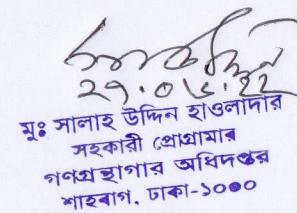 ২৭.০৬.২২
মুঃ সালাহ উদ্দিন হাওলাদার
সহকারী প্রোগ্রামার
গণগ্রন্থাগার অধিদপ্তর
শাহবাগ, ঢাকা-১০০০